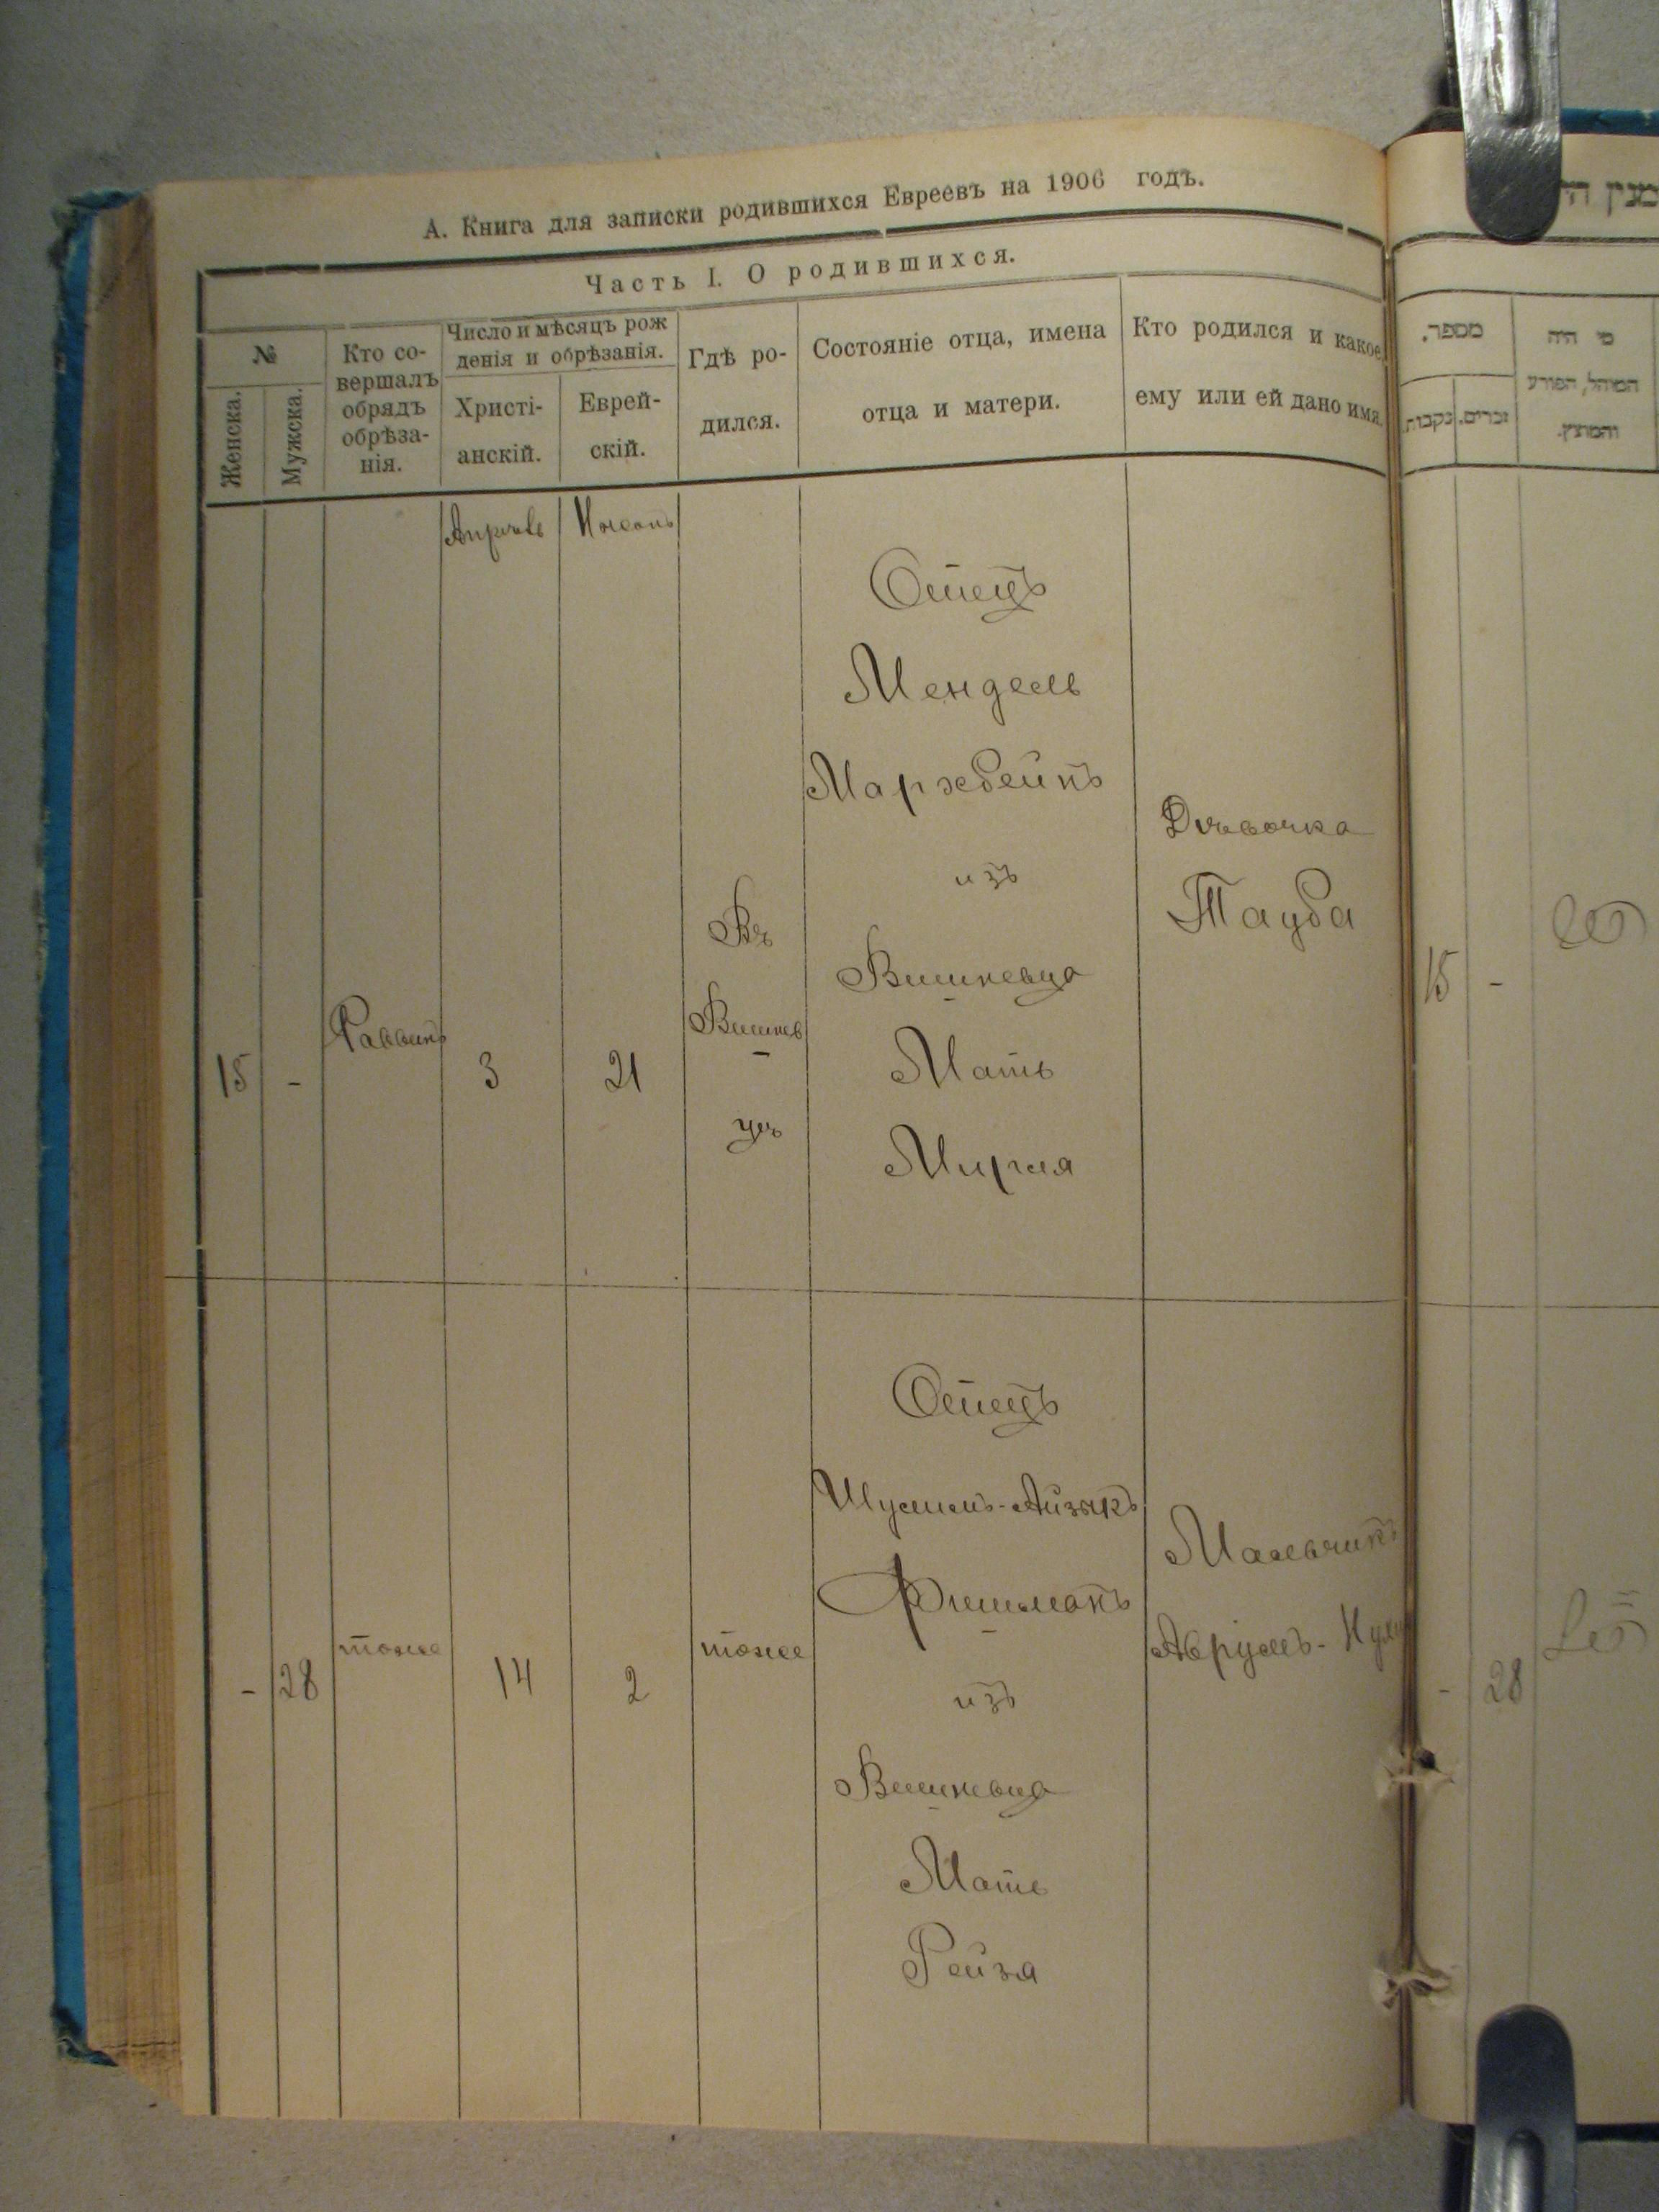 А. Книга для записки родившихся Евреевъ на 1906 годъ.
Часть I. О родившихся.
№
Женска.
Мужска.
Кто со-
вершалъ
обрядъ
обрѣза-
нія.
Число и мѣсяцъ рож
денія и обрѣзанія.
Христі-
анскій.
Еврей-
скій.
Гдѣ ро-
дился.
Состояніе отца, имена
отца и матери.
Кто родился и какое
ему или ей дано имя.
Апрель
15
-
Раввинъ
3
21
Въ
Вишнев
цѣ
Отецъ
Мендель
Маржбейнъ
изъ
Вишневца
Мать
Дѣвочка
Тауба
-
28
тоже
14
2
тоже
Отецъ
Айзыкъ
Фишманъ
изъ
Вишневца
Мать
Рейзя
Мальчикъ
Аврумъ-
מספר.
נקבות.
זכרים.
מי היה
המוהל, הפורע
והמוצץ.
15
-
-
28